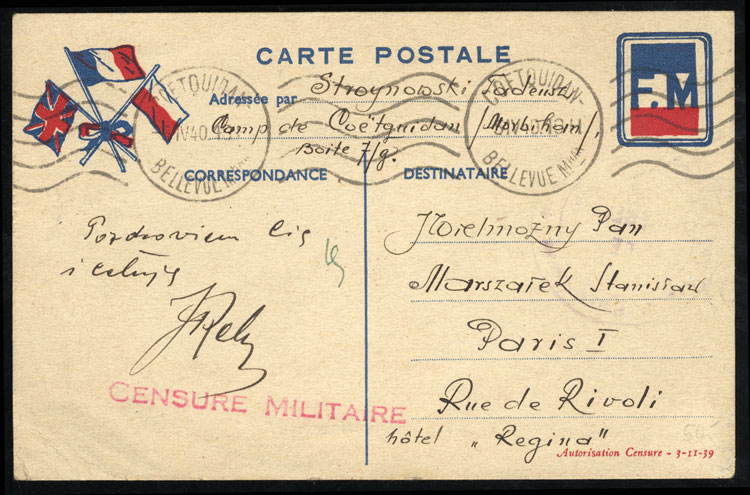 CARTE POSTALE
F.M
Adressée par Stroynowski Tadeusz
Camp de Coëtquidan /Morbihan/,
Boite 7/g.
COETQUIDAN-
BELLEVUE
COETQUIDAN-
BELLEVUE
CORRESPONDANCE
DESTINATAIRE
Pozdrowiem Cię
i całuję
CENSURE MILITAIRE
Wielmożny Pan
Marszałek Stanisław
Paris I
Rue de Rivoli
hôtel „Regina"
Autorisation Censure - 3-11-39
50.-